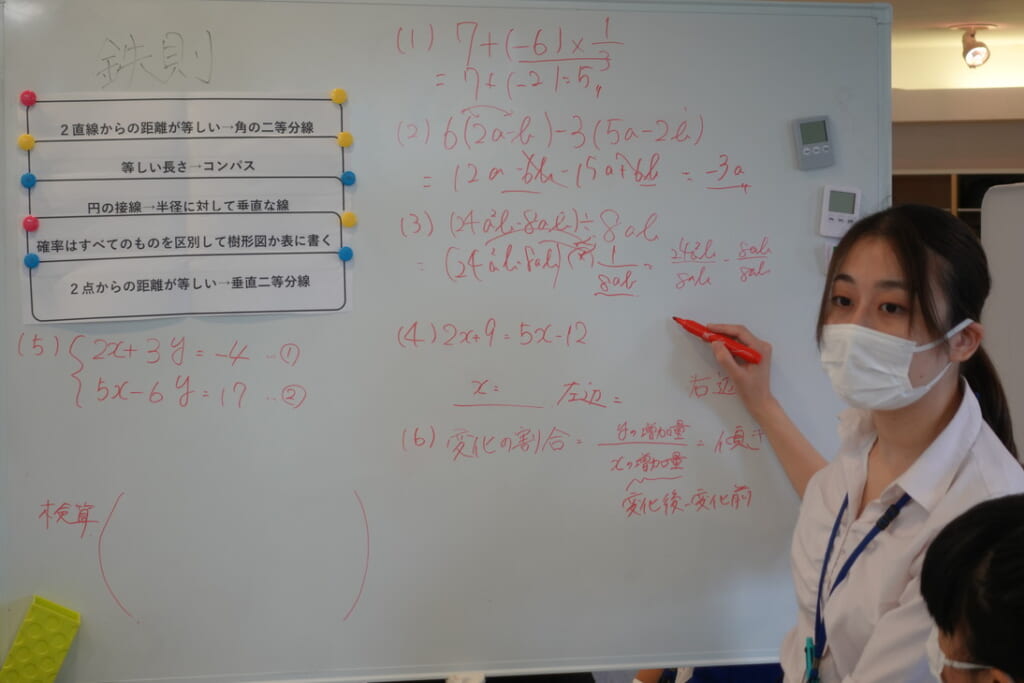 鉄則
2直線からの距離が等しい→角の二等分線
等しい長さ→コンパス
円の接線→半径に対して垂直な線
確率はすべてのものを区別して樹形図か表に書く
2点からの距離が等しい→垂直二等分線
(1) 7+(-6)×1/3
= 7+(-2)=5
(2) 6(2a-b)-3(5a-2b)
= 12a-6b-15a+6b = -3a
(3) (24a²b-8ab)÷8ab
= (24a²b-8ab)(×)1/8ab = 24a²b/8ab - 8ab/8ab
(4) 2x+9=5x-12
x= 左辺= 右辺
(5) {2x+3y=-4 …①
5x-6y=17 …②
検算 ( )
(6) 変化の割合 = yの増加量/xの増加量 = 傾き
変化後-変化前